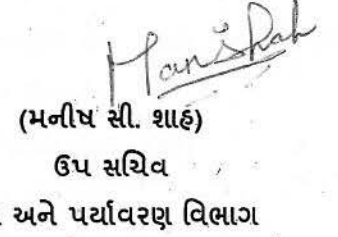 Manishah
(મનીષ સી. શાહ)
ઉપ સચિવ
અને પર્યાવરણ વિભાગ